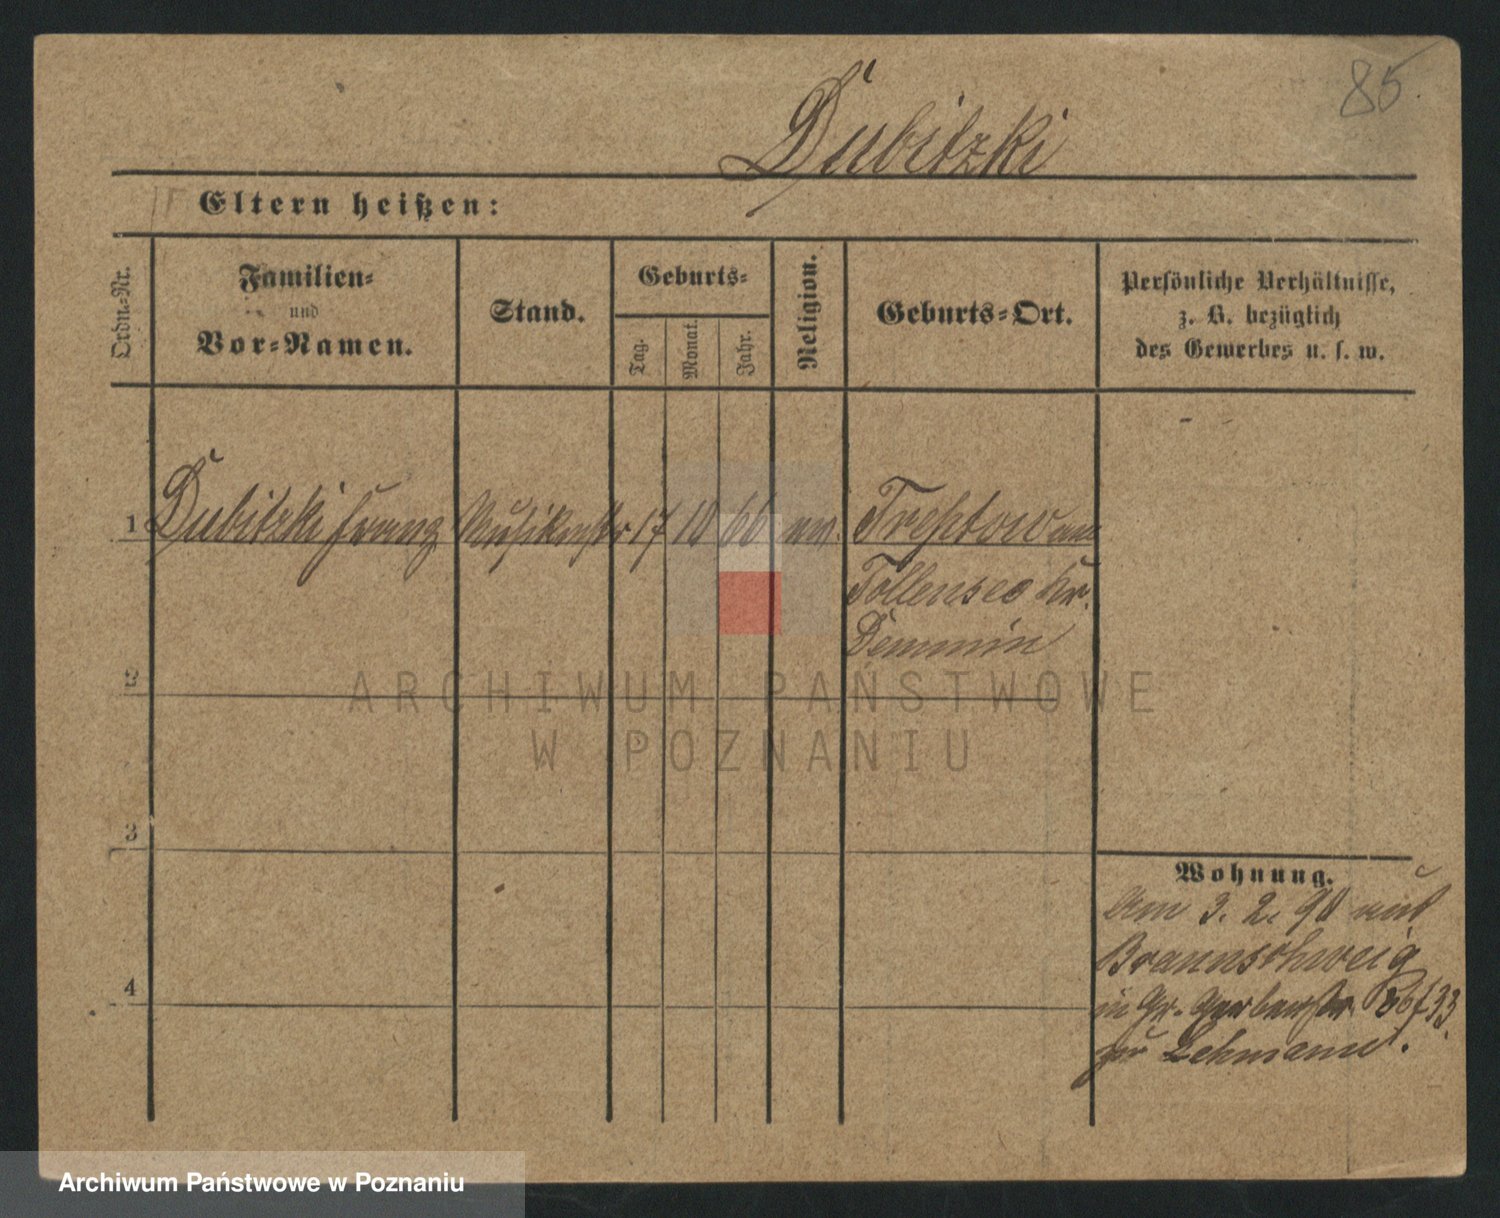 85.
Dubitzki
Eltern heißen:
Ordn.-Nr.
Familien-
und
Vor-Namen.
Stand.
Geburts-
Tag.
Monat.
Jahr.
Religion.
Geburts-Ort.
Persönliche Verhältnisse,
z. B. bezüglich
des Gewerbes u. s. w.
1 Dubitzki Franz 17 10 66 ev. Treptow
Tollensee Kr.
Demmin
2
3
4
Wohnung.
Am 3. 2. 90 aus
Braunschweig
in Gr. Gerberstr. 33
zu Lehmann.
ARCHIWUM PAŃSTWOWE
W POZNANIU
Archiwum Państwowe w Poznaniu